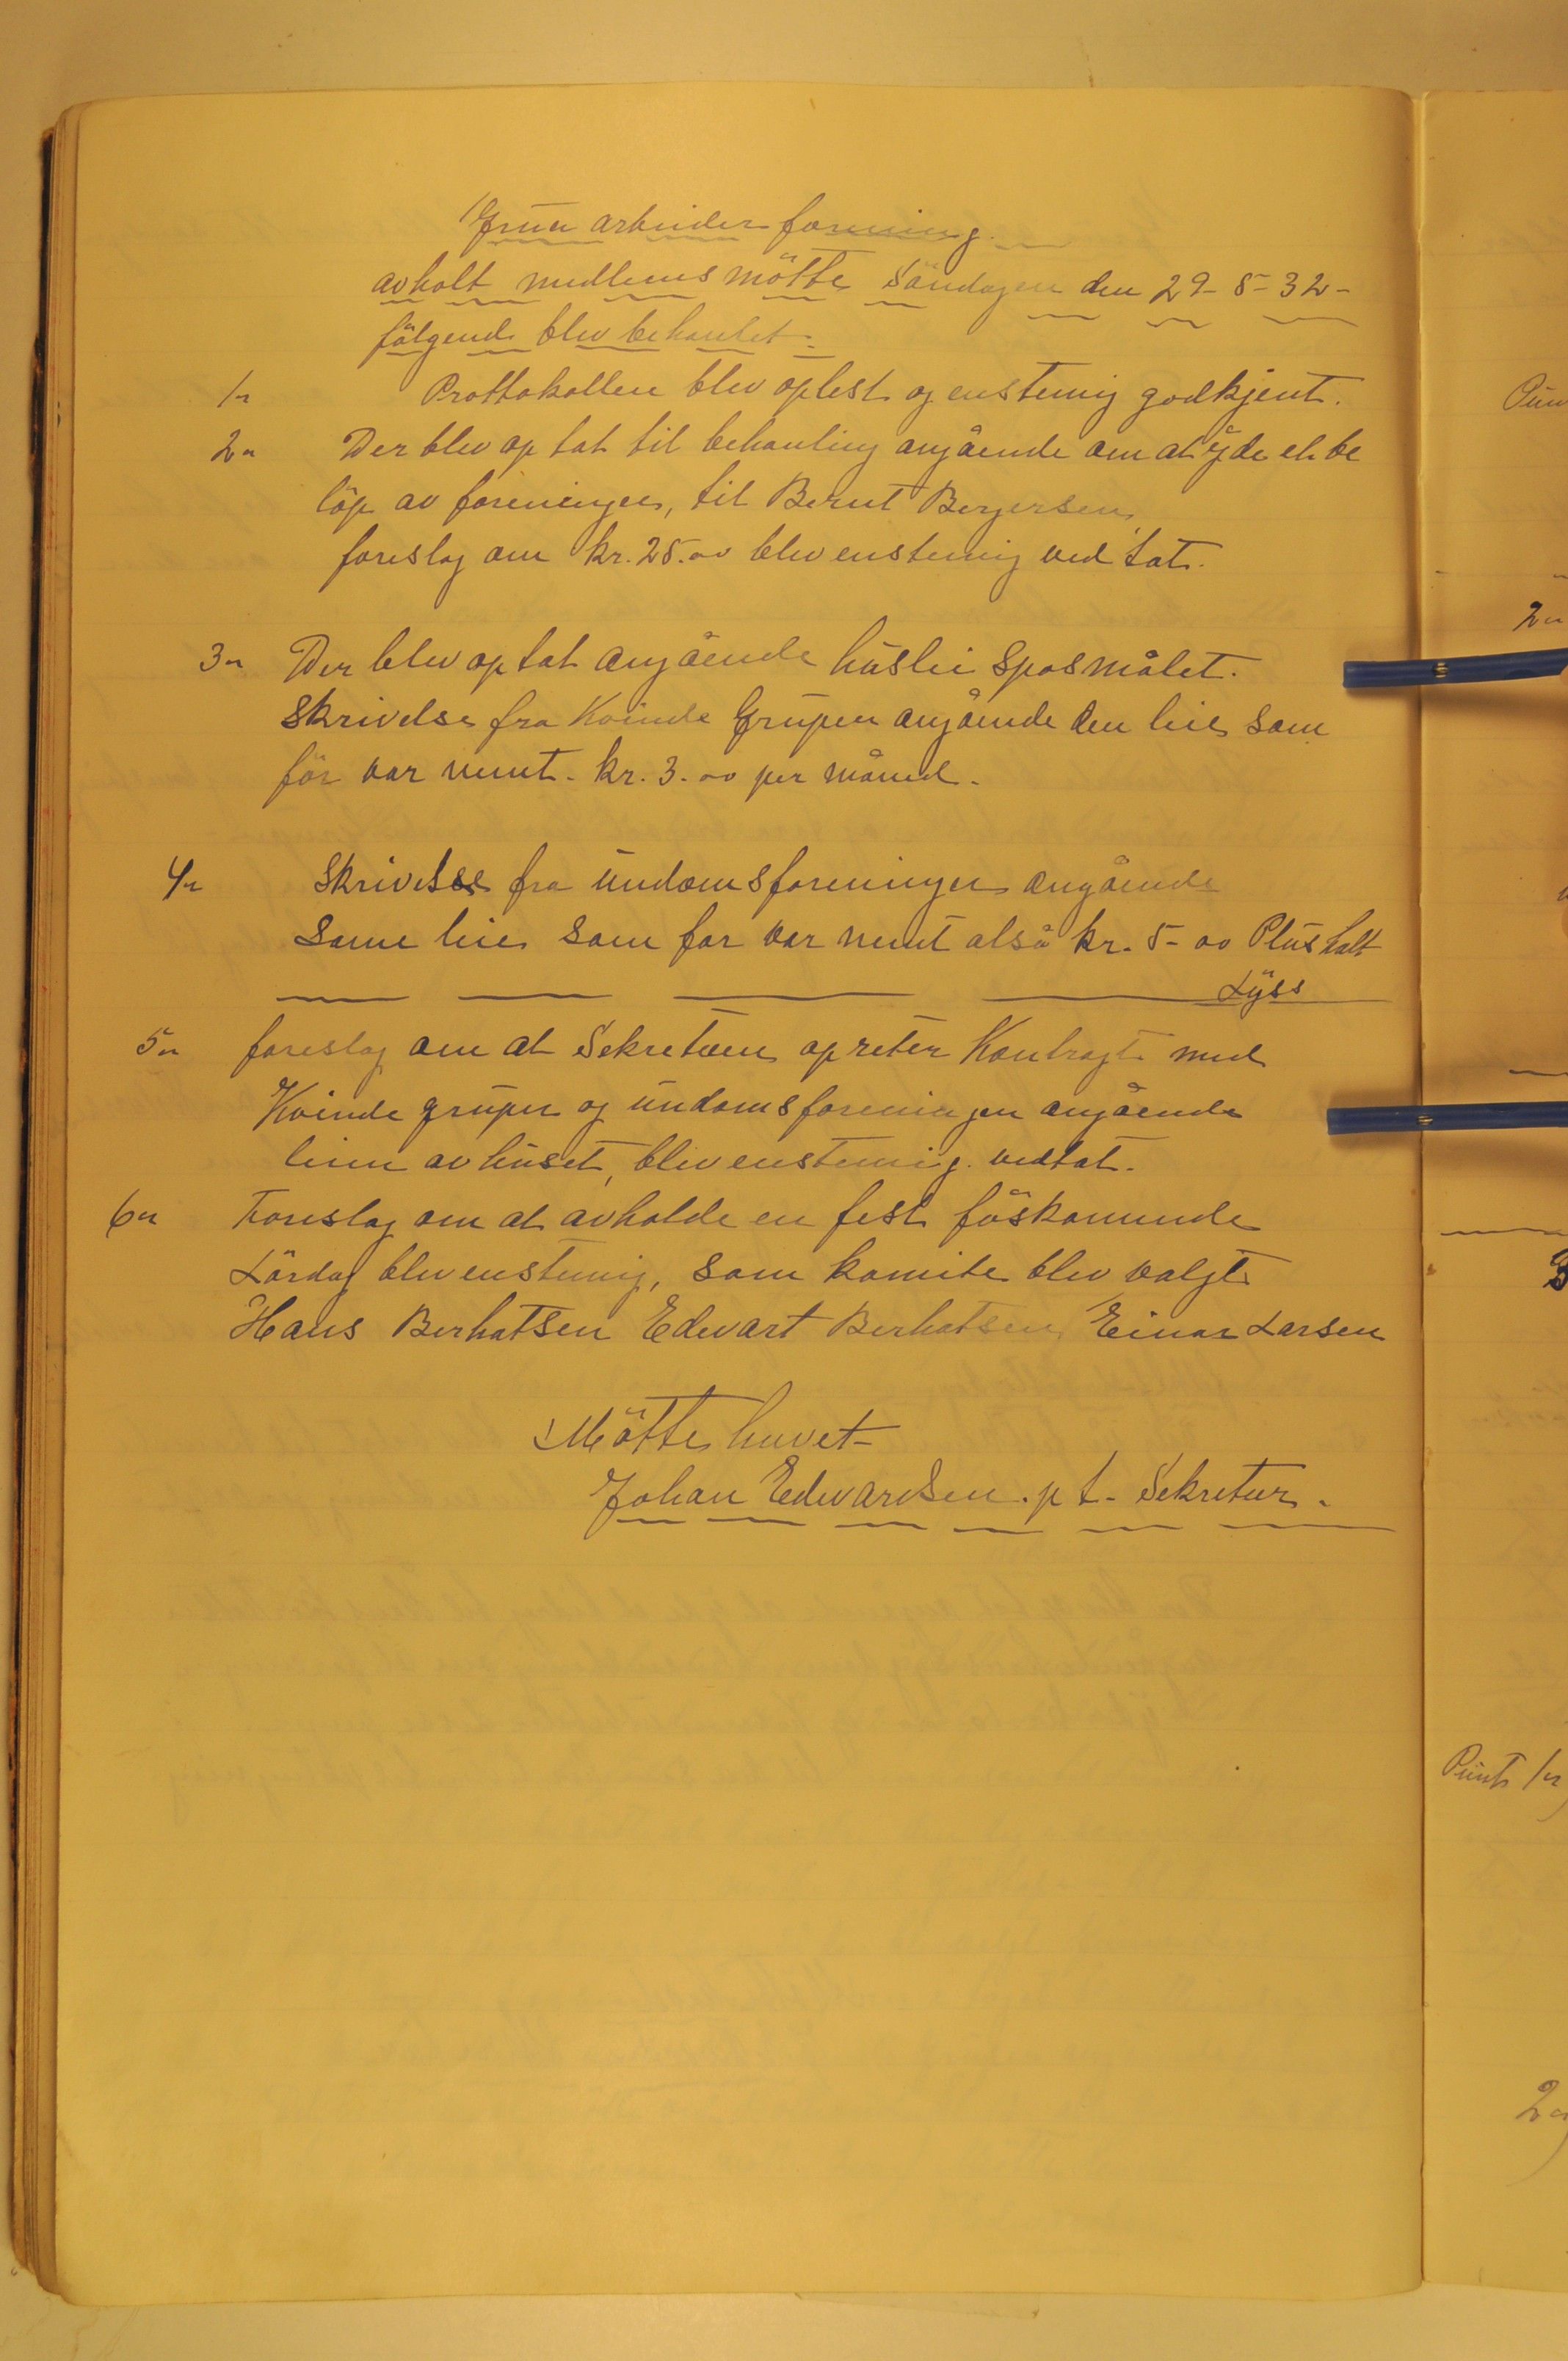 Grua arbeider forening.
avholt medlems mötte Söndagen den 29-5-32-
fölgende blev behanlet.
1- Prottokollen blev oplest og enstemig godkjent.
2- Der blev op tat til behanling angående om at yde et be
löp av foreningen, til Bernt Bergersen,
foreslag om kr. 25.00 blev enstemig ved tat.
3- Der blev op tat angående huslei sposmålet.
Skrivelse fra Kvinde Grupen angående den leie som
för var nemt. kr. 3.00 per måned.
4- Skrivelse fra undomsforeningen angående
same leie som for var nemt alså kr. 5-00 Plus halt
Lyss
5- foreslag om at Sekretæren opreter Kontragt med
Kvinde grupen og undomsforeningen angående
leien av huset, blev enstemig vedtat.
6- Foreslag om at avholde en fest föskomende
Lördag blev enstemig, som komite blev valgt
Hans Berhatsen Edvart Berhatsen Einar Larsen
Mötte hevet-
Johan Edvardsen. p t- Sekretær.
2-
Punt 1-
2-